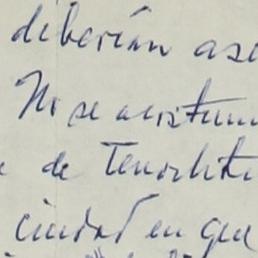 deberían ase
No se acostum
de Tenochti
ciudad en que